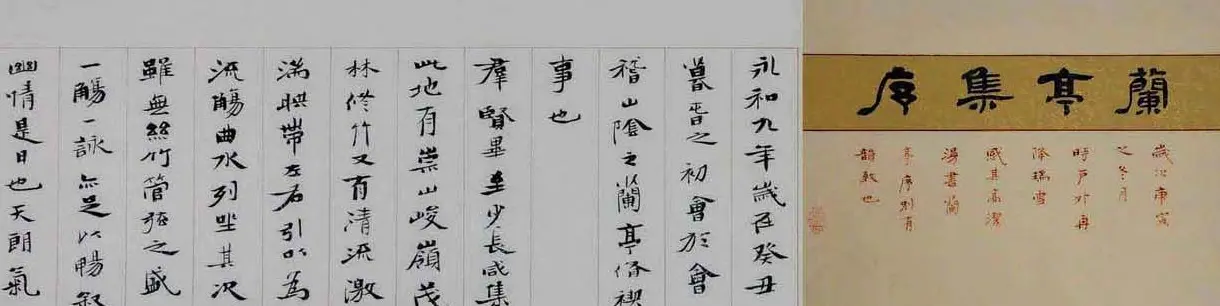 蘭亭集序
歲次庚寅
之冬月
時戶外再
降瑞雪
感其高潔
書蘭
亭序別有
韻致也
永和九年歲在癸丑
暮春之初會於會
稽山陰之蘭亭脩禊
事也
羣賢畢至少長咸集
此地有崇山峻嶺茂
林修竹又有清流激
湍暎帶左右引以為
流觴曲水列坐其次
雖無絲竹管弦之盛
一觴一詠亦足以暢敘
幽情是日也天朗氣